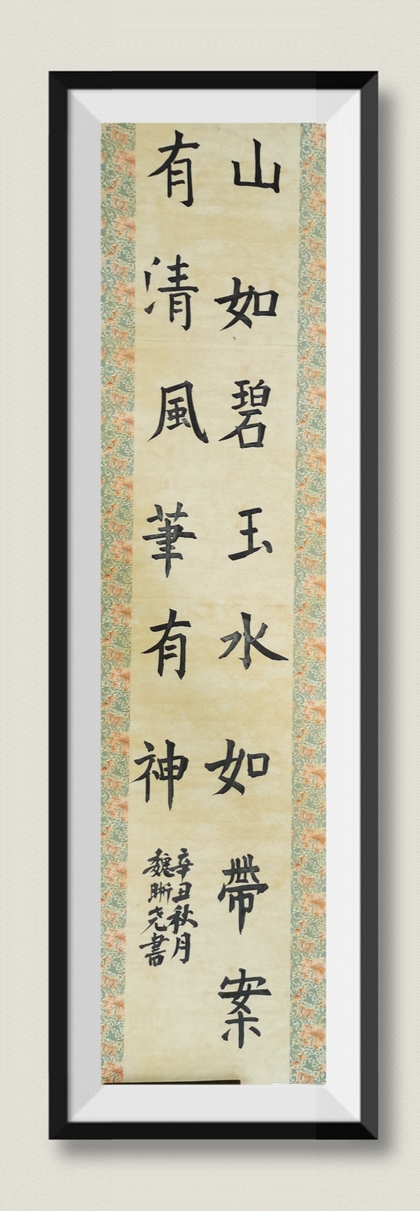 山如碧玉水如帶案
有清風筆有神
辛丑秋月
魏晰尧書